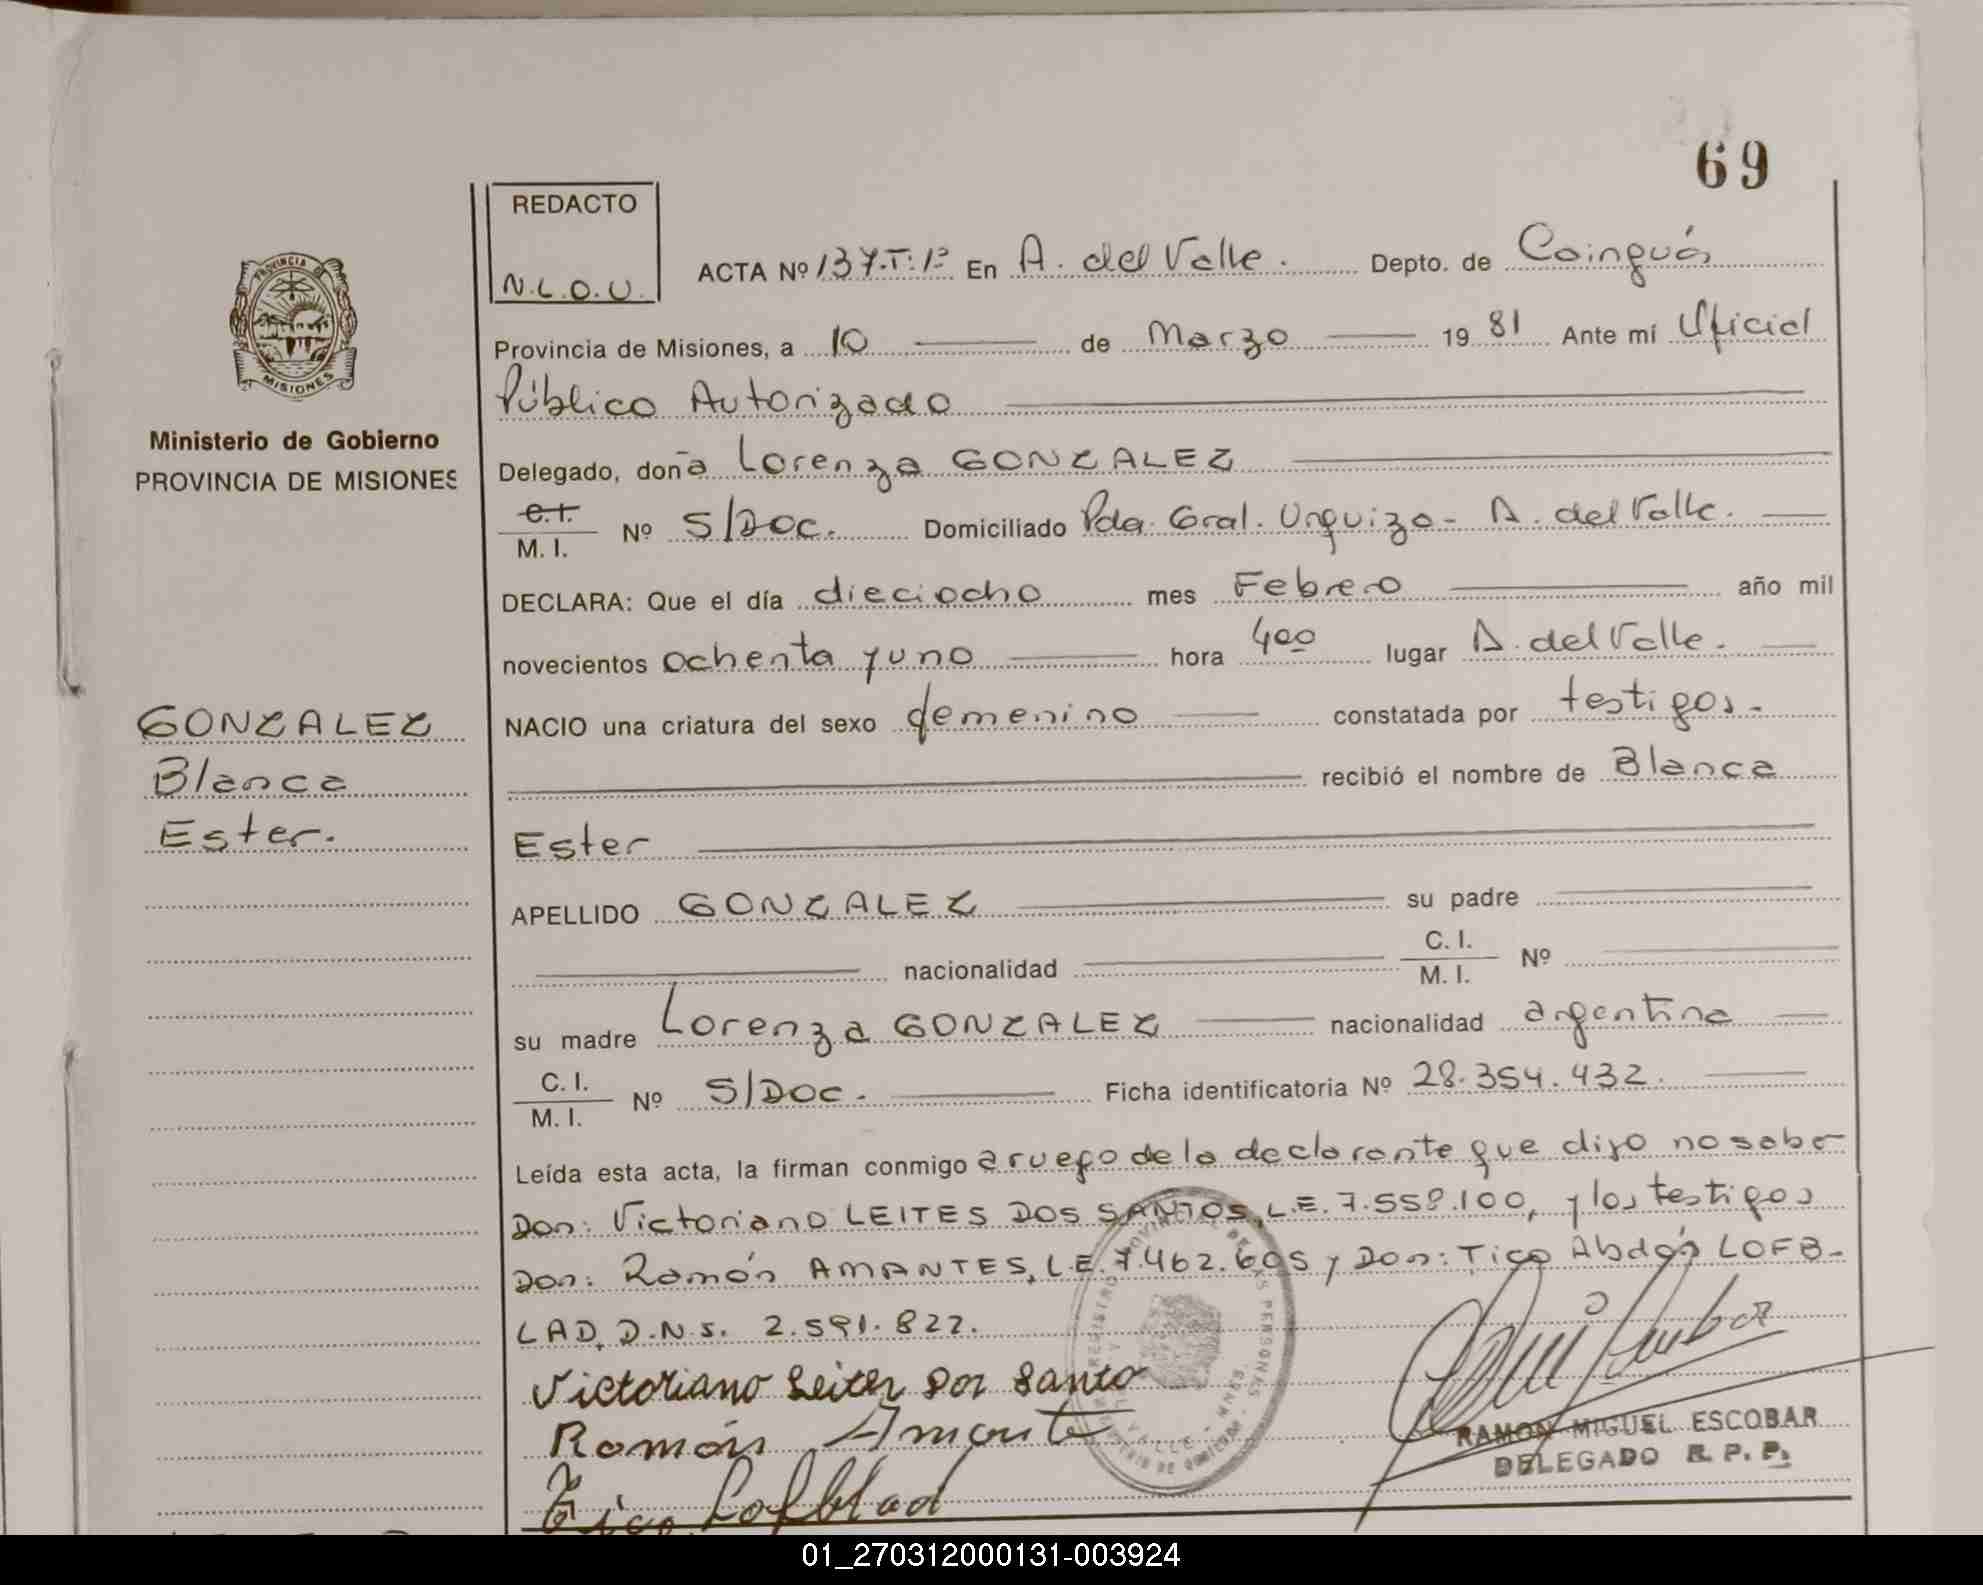 69
REDACTO
N.L.O.U.
ACTA Nº 137.T:1º En A. del Valle. Depto. de Cainguás
Provincia de Misiones, a 10 de Marzo 1981 Ante mí Oficial
Público Autorizado
Ministerio de Gobierno
PROVINCIA DE MISIONES
Delegado, doña Lorenza GONZALEZ
C.I.
M. I. Nº S/Doc. Domiciliado Pda. Gral. Urquiza - A. del Valle.
DECLARA: Que el día dieciocho mes Febrero año mil
novecientos ochenta y uno hora 400 lugar A. del Valle.
NACIO una criatura del sexo femenino constatada por testigos.
recibió el nombre de Blanca
Ester
GONZALEZ
Blanca
Ester.
APELLIDO GONZALEZ su padre
nacionalidad C. I. M. I. Nº
su madre Lorenza GONZALEZ nacionalidad argentina
C. I.
M. I. Nº S/Doc. Ficha identificatoria Nº 28.354.432.
Leída esta acta, la firman conmigo a ruego de la declarante que dijo no saber
Don: Victoriano LEITES DOS SANTOS, L.E. 7.558.100, y los testigos
Don: Ramón AMANTES, L.E. 7.462.605 y Don: Tico Abdón LOFB-
LAD, D.N.I. 2.591.822.
Victoriano Leites Dos Santo
Ramón Amante
Tico Lofblad
RAMON MIGUEL ESCOBAR
DELEGADO R. P. P.
01_270312000131-003924